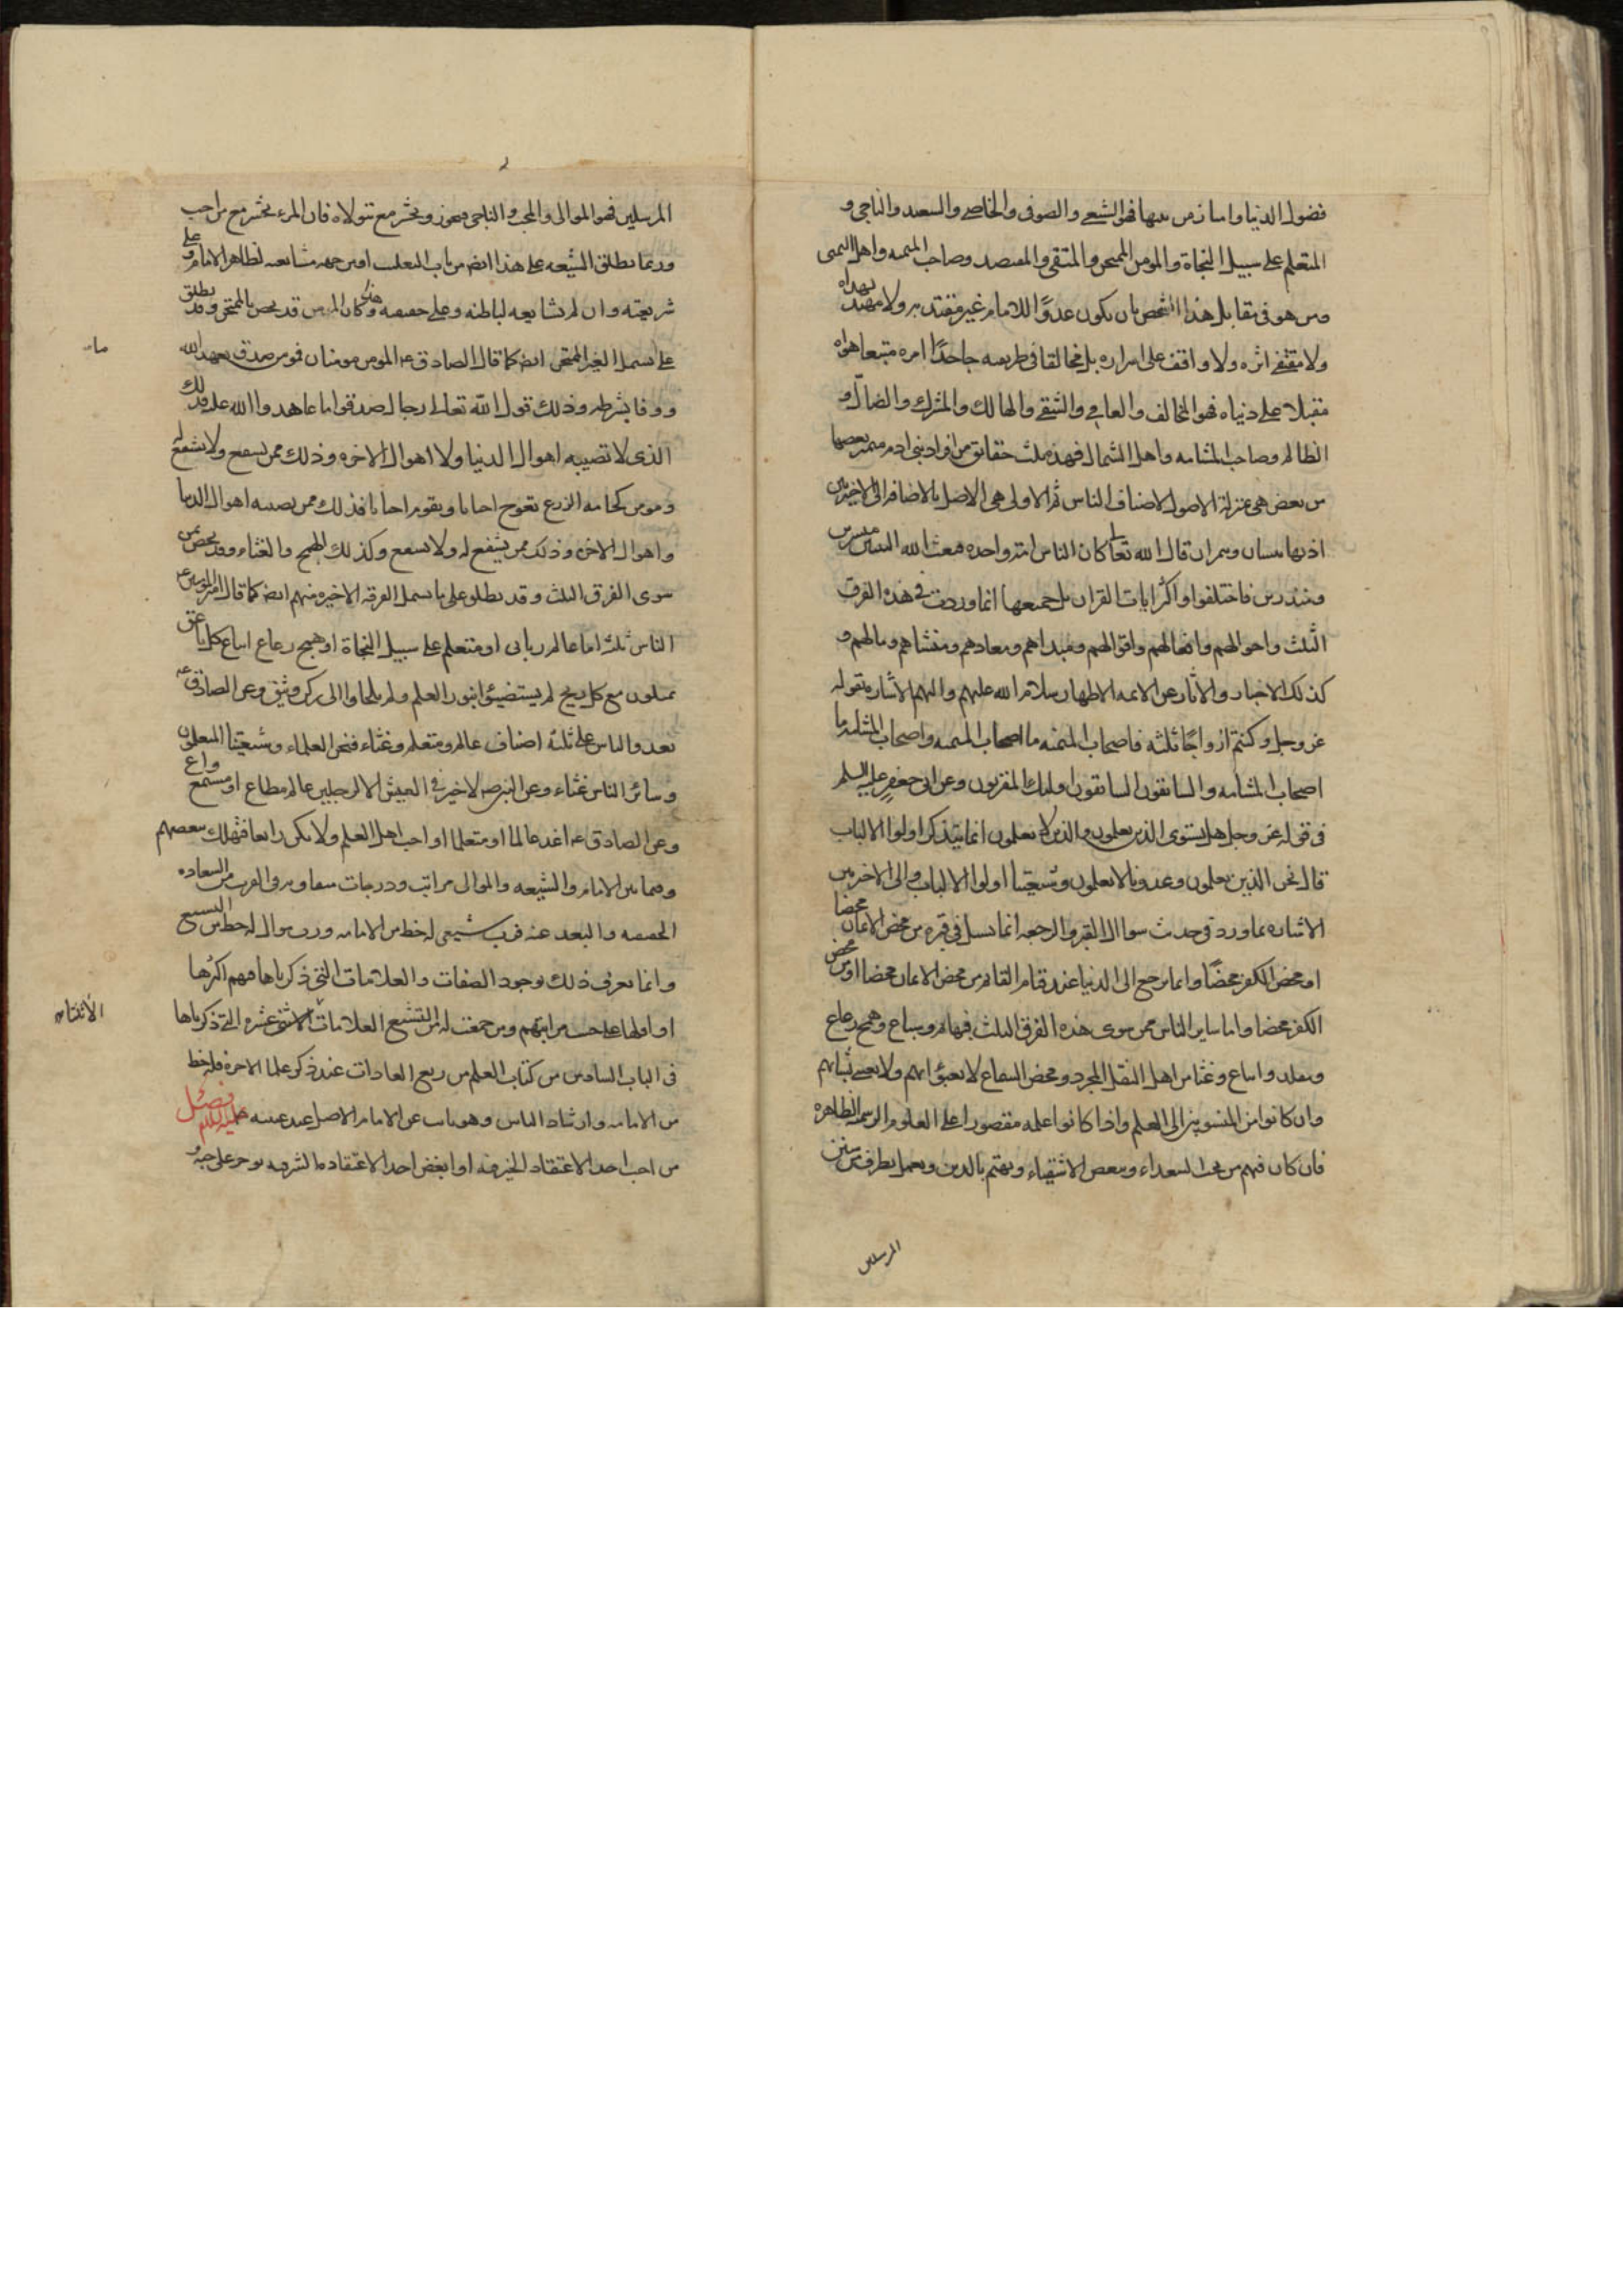 فضول الدنيا واما من فهو الشيعي والصوفي والخاصي والسعيد والناجي و
المتعلم على سبيل النجاة والمومن الممتحن والمتقي والمقتصد وصاحب الميمنه واهل اليمين
ومن هو في مقابل هذا الشخص بان يكون عدوًا للامام غير مقتد به ولا مهتد بهداه
ولا مقتف اثره ولا واقف على اسراره بل مخالفا في طريقه جاحدًا امره متبعا هواه
مقبلا على دنياه فهو المخالف والعامي والشقي والهالك والمشرك والضال و
الظالم وصاحب المشامه واهل الشمال فهذه ثلث حقائق من افراد بني ادم متميز بعضها
من بعض هي بمنزلة الاصول لاصناف الناس ثم الاولى هي الاصل بالاضافة الى الاخيرتين
اذ بها قال الله تعا كان الناس امة واحده فبعث الله النبيين مبشرين
ومنذرين فاختلفوا واكثر ايات القران بل جميعها انما وردت في هذه الفرق
الثلث واحوالهم وافعالهم واقوالهم ومبداهم ومعادهم ومنشاهم ومالهم و
كذلك الاخبار والاثار عن الائمه الاطهار سلام الله عليهم واليهم الاشاره بقوله
عز وجل وكنتم ازواجًا ثلثه فاصحاب الميمنه ما اصحاب الميمنه واصحاب المشئمه ما
اصحاب المشامه والسابقون السابقون اولئك المقربون وعن ابي جعفر عليه السلم
في قوله عز وجل هل يستوي الذين يعلمون والذين لا يعلمون انما يتذكر اولوا الالباب
قال نحن الذين يعلمون وعدونا لا يعلمون وشيعتنا اولوا الالباب والى الاخرين
الاشاره بما ورد في حديث سوال القبر والرجعه انما يسئل في قبره من محض الايمان محضا
او محض الكفر محضًا وانما يرجع الى الدنيا عند قيام القائم من محض الايمان محضا او من محض
الكفر محضا واما ساير الناس ممن سوى هذه الفرق الثلث وهمج رعاع
ومقلد واتباع وغثا من اهل النقل المجرد ومحض السماع لا يعبؤ بهم ولا
وان كانوا من المنسوبين الى العلم واذا كانوا علمه مقصورا على العلوم الرسميه الظاهره
فان كان فيهم من يحب السعداء ويبغض الاشقياء ويهتم بالدين ويعمل بطرف من سنن
المرسلين
المرسلين فهو الموالي والمحب والناجي ويحشر مع من تولاه فان المرء يحشر مع من احب
وربما يطلق الشيعه على هذا ايضا من باب التغليب او من جهه مشايعته لظاهر الامام وعلى
شريعته وان لم يشايعه لباطنه وعلى حقيقته وكما ان المومن قد يخص بالممتحن وقد يطلق
على ما يشمل الغير الممتحن ايضا كما قال الصادق ع المومن مومنان فمومن صدق بعهد الله
ووفا بشرطه وذلك قول الله تعالى رجال صدقوا ما عاهدوا الله عليه فذلك
الذي لا تصيبه اهوال الدنيا ولا اهوال الاخره وذلك ممن يشفع ولا يشفع له
ومومن كخامه الزرع تعوج احيانا وتقوم احيانا فذلك ممن تصيبه اهوال الدنيا
واهوال الاخره وذلك ممن يشفع له ولا يشفع وكذلك الهمج والغثاء وقد يخص بمن
سوى الفرق الثلث وقد يطلق على ما يشمل الفرقه الاخيره منهم ايضا كما قال امير المومنين ع
الناس ثلثه اما عالم رباني او متعلم على سبيل النجاة او همج رعاع اتباع كل ناعق
يميلون مع كل ريح لم يستضيئوا بنور العلم ولم يلجاوا الى ركن وثيق وعن الصادق ع
يغدوا الناس على ثلثة اصناف عالم ومتعلم وغثاء فنحن العلماء وشيعتنا المتعلمون
وسائر الناس غثاء وعن النبي ص لا خير في العيش الا لرجلين عالم مطاع او مستمع واع
وعن الصادق ع اغد عالما او متعلما او احب اهل العلم ولا تكن رابعا فتهلك ببغضهم
وفيما بين الامام والشيعه والموالي مراتب ودرجات متفاوته في القرب من السعاده
الحقيقيه والبعد عنه فرب شيعي له حظ من الامامه ورب موال له حظ من التشيع
وانما يعرف ذلك بوجود الصفات والعلامات التي ذكرناها فيهم اكثرها
او اقلها على حسب مراتبهم ومن جمعت له من التشيع العلامات الاثنتي عشره التي ذكرناها
الاثنتا
في الباب السادس من كتاب العلم من ربع العبادات عند ذكر علما الاخره فله حظ
من الامامه وارشاد الناس وهو نائب عن الامام الاصل عند غيبته عليه السلم فصل
من احب احدا لاعتقاد الخير فيه او ابغض احدا لاعتقاد الشر فيه يوجر على حبه